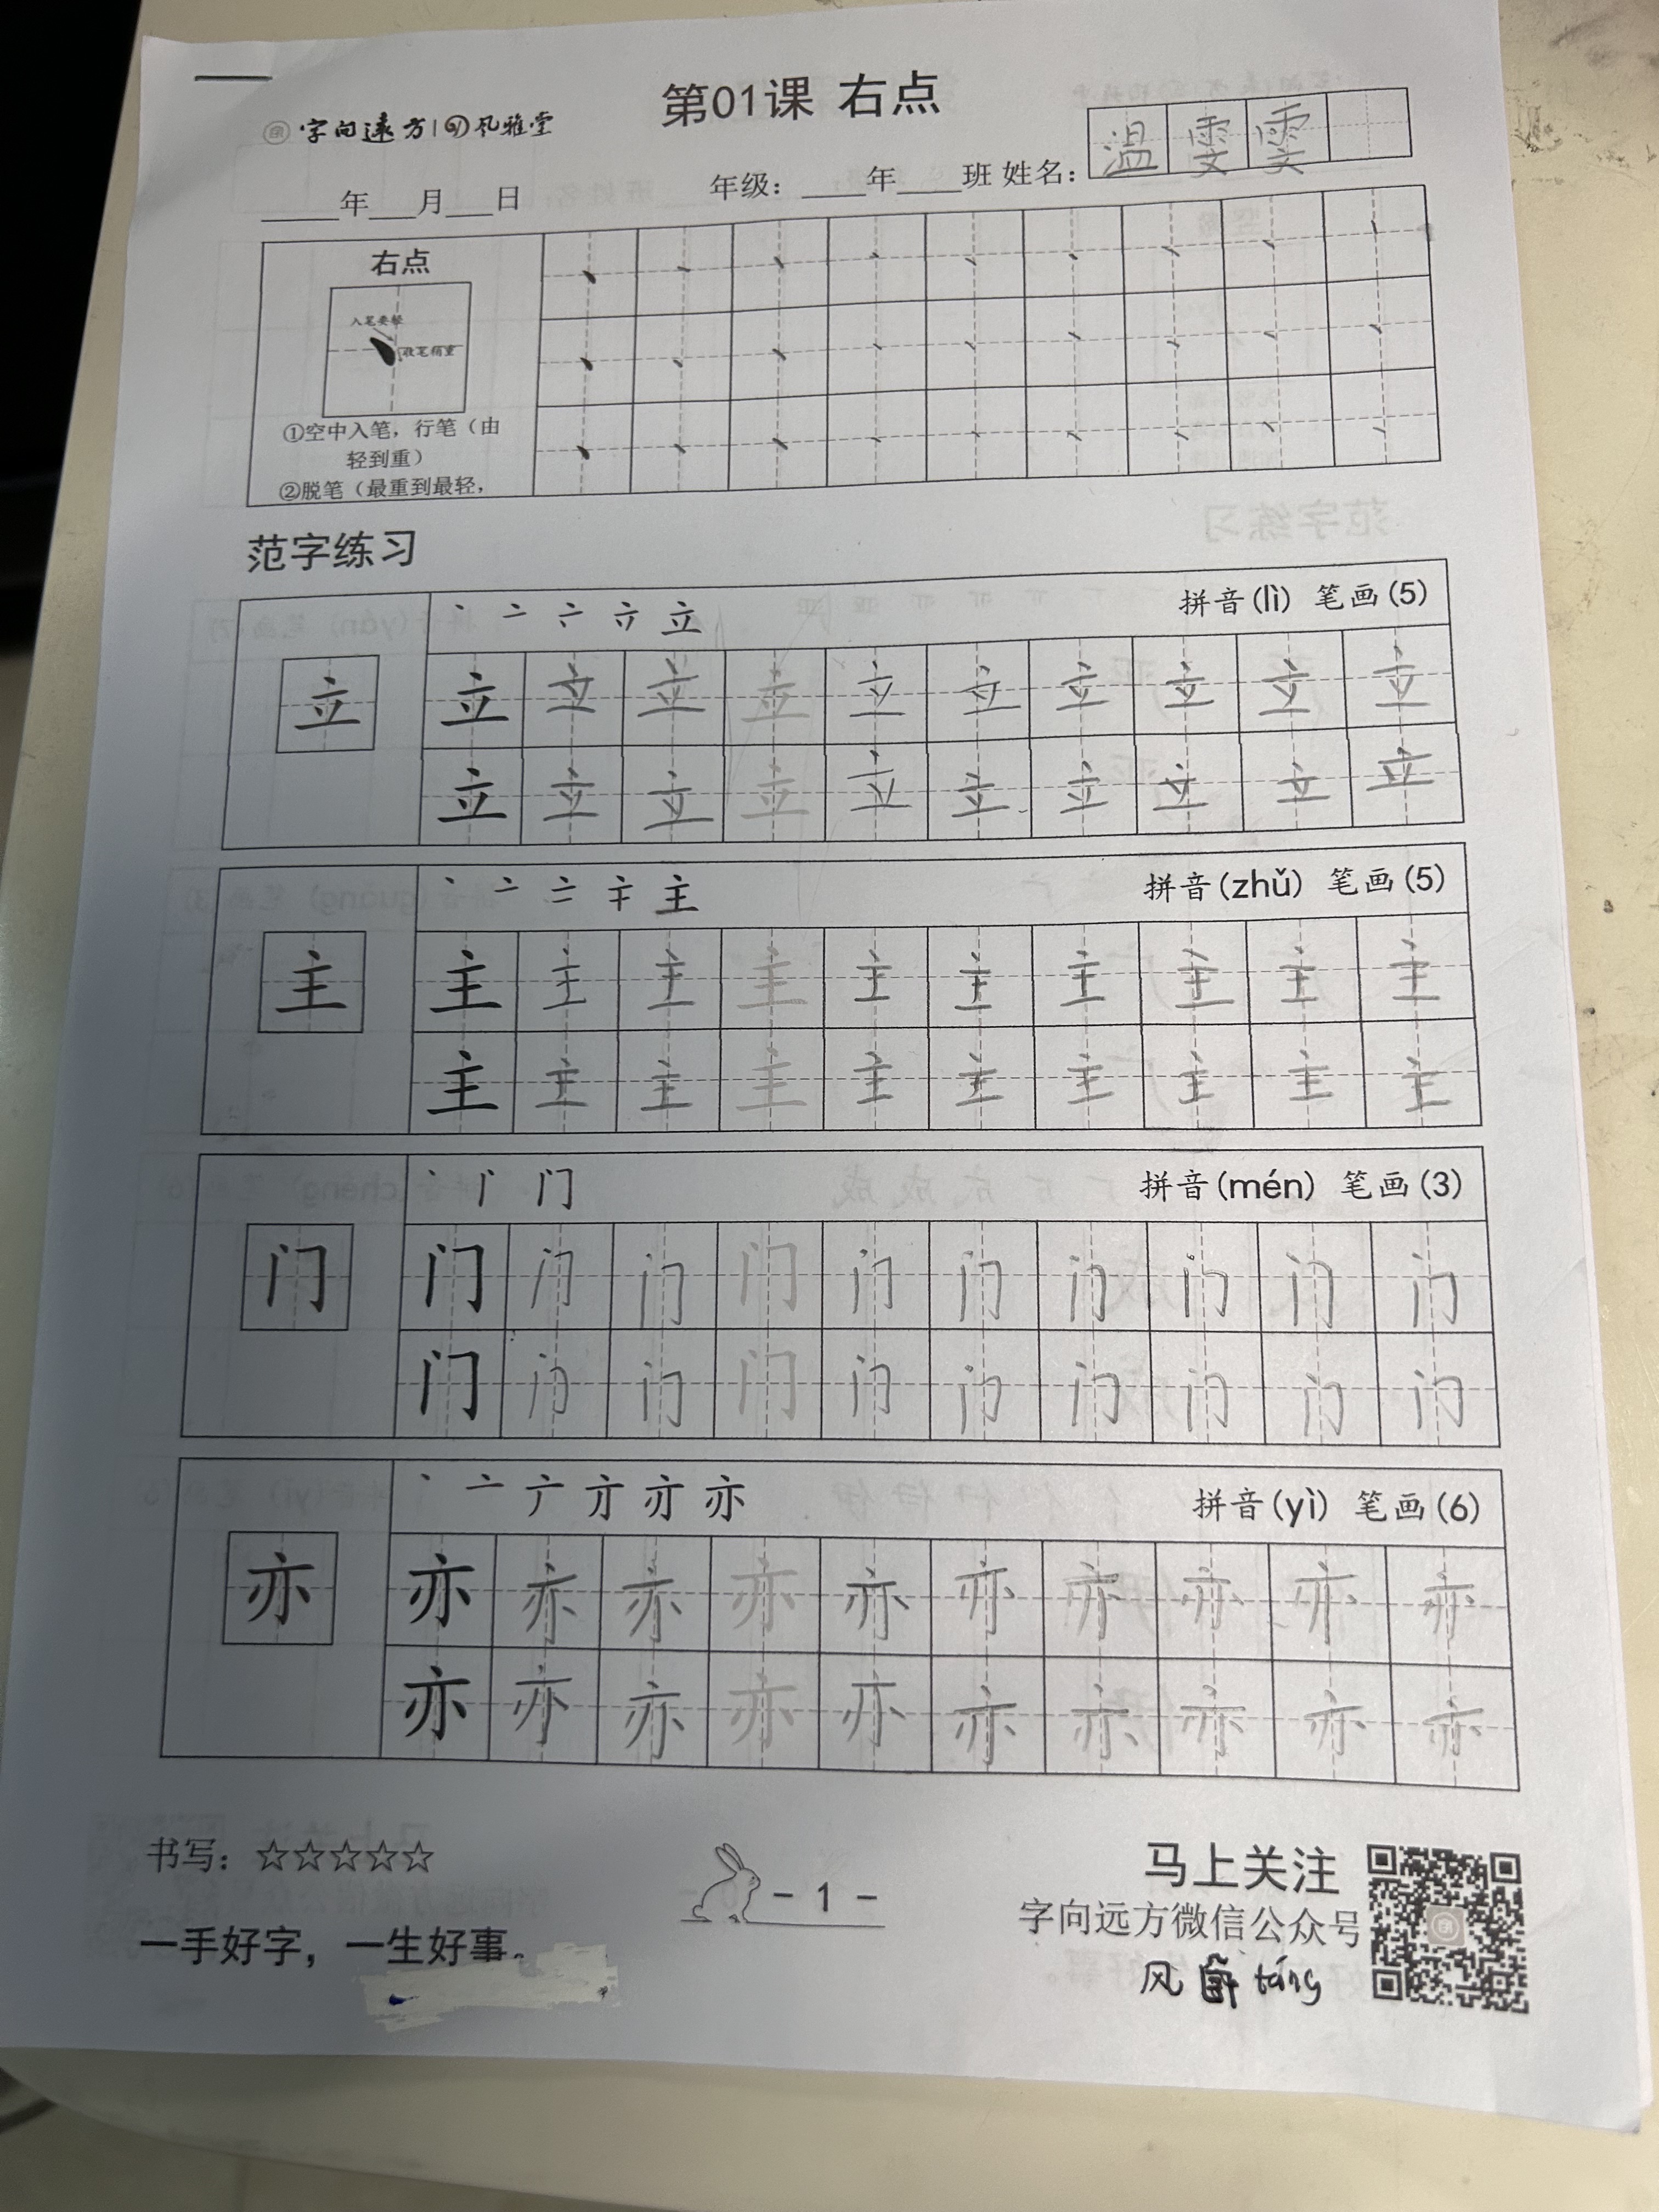 第01课 右点
字向远方 风雅堂
温雯雯
年 月 日 年级： 年 班 姓名：
右点
入笔要轻
收笔稍重
①空中入笔，行笔（由
轻到重）
②脱笔（最重到最轻，
范字练习
拼音(lì) 笔画(5)
立 立 立 立 立 立 立 立 立 立 立
立 立 立 立 立 立 立 立 立 立
拼音(zhǔ) 笔画(5)
主 主 主 主 主 主 主 主 主 主 主
主 主 主 主 主 主 主 主 主 主
拼音(mén) 笔画(3)
门 门 门 门 门 门 门 门 门 门 门
门 门 门 门 门 门 门 门 门 门
拼音(yì) 笔画(6)
亦 亦 亦 亦 亦 亦 亦 亦 亦 亦 亦
亦 亦 亦 亦 亦 亦 亦 亦 亦 亦
书写：☆☆☆☆☆
一手好字，一生好事。
- 1 -
马上关注
字向远方微信公众号
风 táng